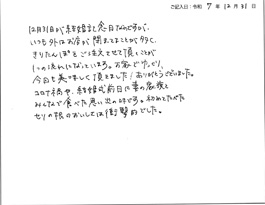 ご記入日:令和 7年12月31日
12月31日が結婚記念日なのですが、
いつも外はお店が閉まってることが多く、
きりたんぽをご注文させて頂くことが
1つの流れになっています。お家でゆったり、
今日も美味しく頂きました!ありがとうございました。
コロナ禍や、結婚式前日に妻の家族と
みんなで食べた思い出の味です。初めてたべた
セリの根のおいしさは衝撃的でした。